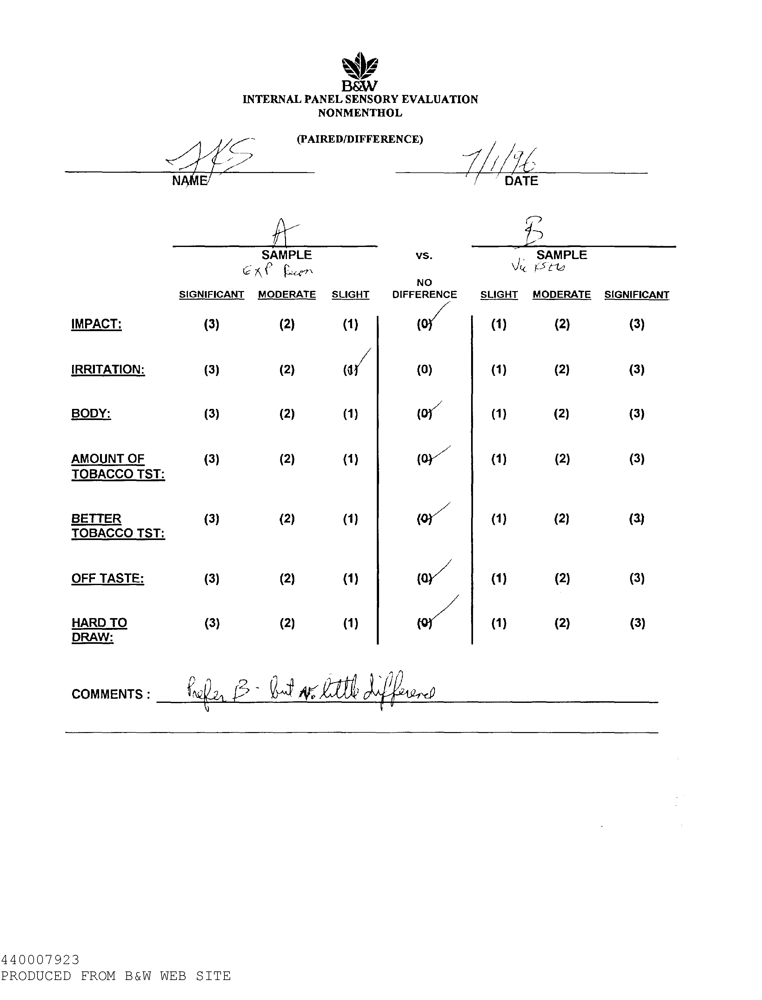 B&W
INTERNAL PANEL SENSORY EVALUATION
NONMENTHOL
(PAIRED/DIFFERENCE)
7/1/96
NAME DATE
A B
SAMPLE vs. SAMPLE
EXP
NO
SIGNIFICANT MODERATE SLIGHT DIFFERENCE SLIGHT MODERATE SIGNIFICANT
IMPACT: (3) (2) (1) (0) (1) (2) (3)
IRRITATION: (3) (2) (1) (0) (1) (2) (3)
BODY: (3) (2) (1) (0) (1) (2) (3)
AMOUNT OF (3) (2) (1) (0) (1) (2) (3)
TOBACCO TST:
BETTER (3) (2) (1) (0) (1) (2) (3)
TOBACCO TST:
OFF TASTE: (3) (2) (1) (0) (1) (2) (3)
HARD TO (3) (2) (1) (0) (1) (2) (3)
DRAW:
COMMENTS : Prefer B - but No little difference
440007923
PRODUCED FROM B&W WEB SITE